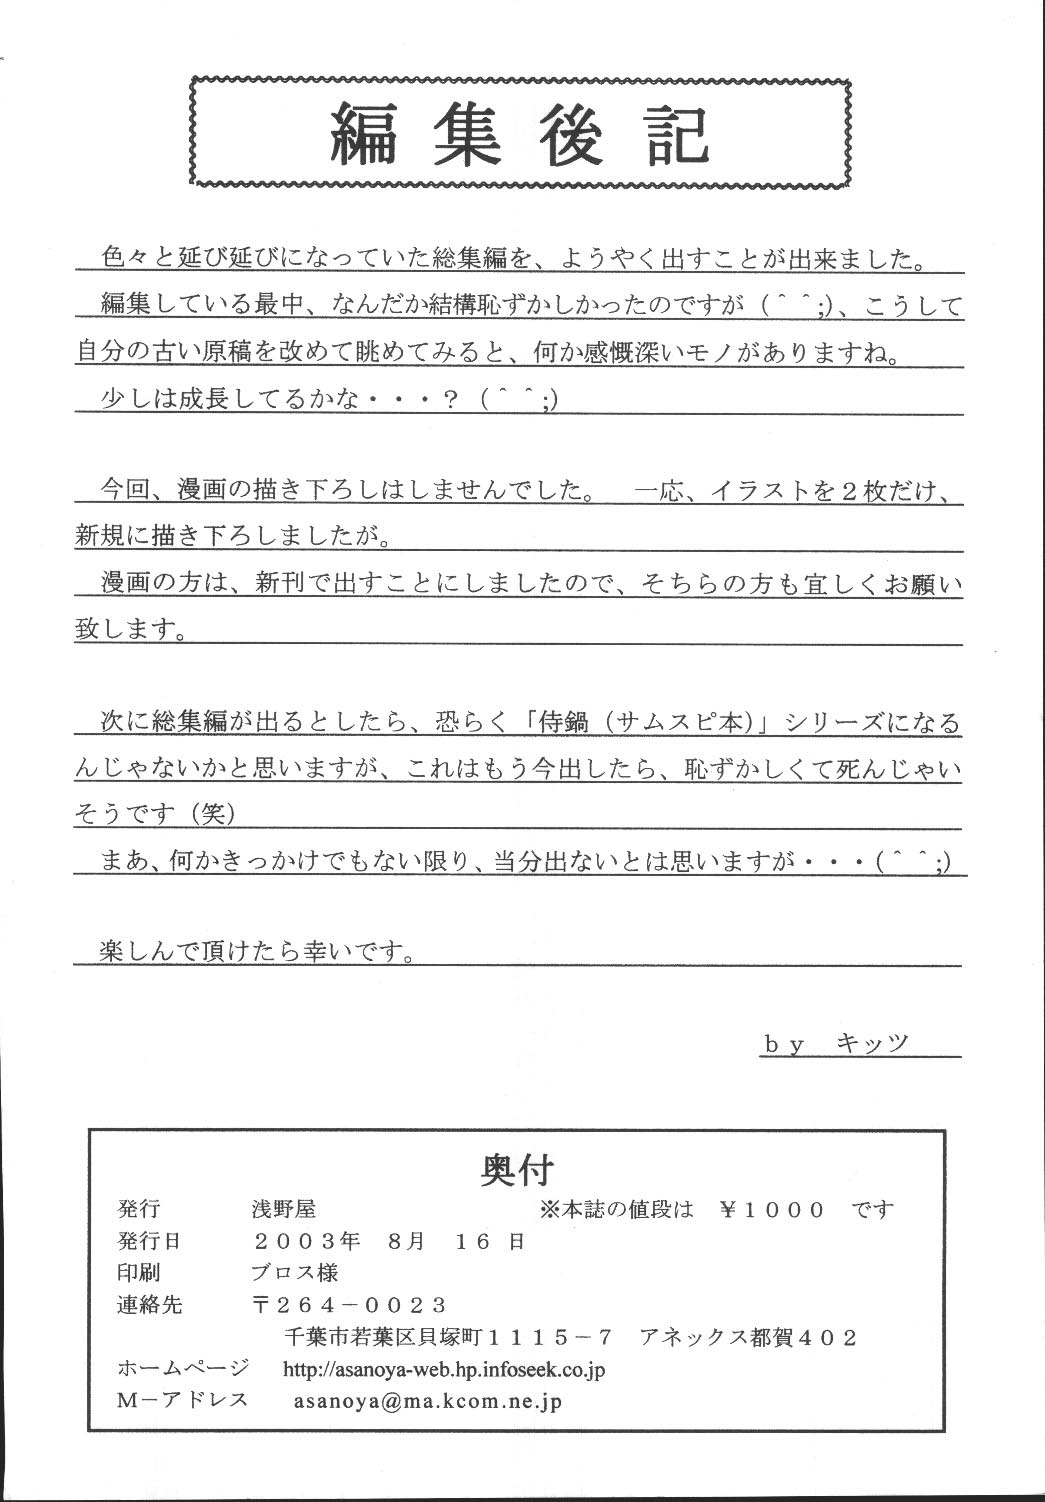 編集後記
色々と延び延びになっていた総集編を、ようやく出すことが出来ました。
編集している最中、なんだか結構恥ずかしかったのですが（＾＾;）、こうして
自分の古い原稿を改めて眺めてみると、何か感慨深いモノがありますね。
少しは成長してるかな・・・？（＾＾;）
今回、漫画の描き下ろしはしませんでした。　一応、イラストを２枚だけ、
新規に描き下ろしましたが。
漫画の方は、新刊で出すことにしましたので、そちらの方も宜しくお願い
致します。
次に総集編が出るとしたら、恐らく「侍鍋（サムスピ本）」シリーズになる
んじゃないかと思いますが、これはもう今出したら、恥ずかしくて死んじゃい
そうです（笑）
まあ、何かきっかけでもない限り、当分出ないとは思いますが・・・（＾＾;）
楽しんで頂けたら幸いです。
ｂｙ　キッツ
奥付
発行　浅野屋　※本誌の値段は　￥１０００　です
発行日　２００３年　８月　１６　日
印刷　ブロス様
連絡先　〒２６４－００２３
千葉市若葉区貝塚町１１１５－７　アネックス都賀４０２
ホームページ　http://asanoya-web.hp.infoseek.co.jp
Ｍ－アドレス　asanoya@ma.kcom.ne.jp